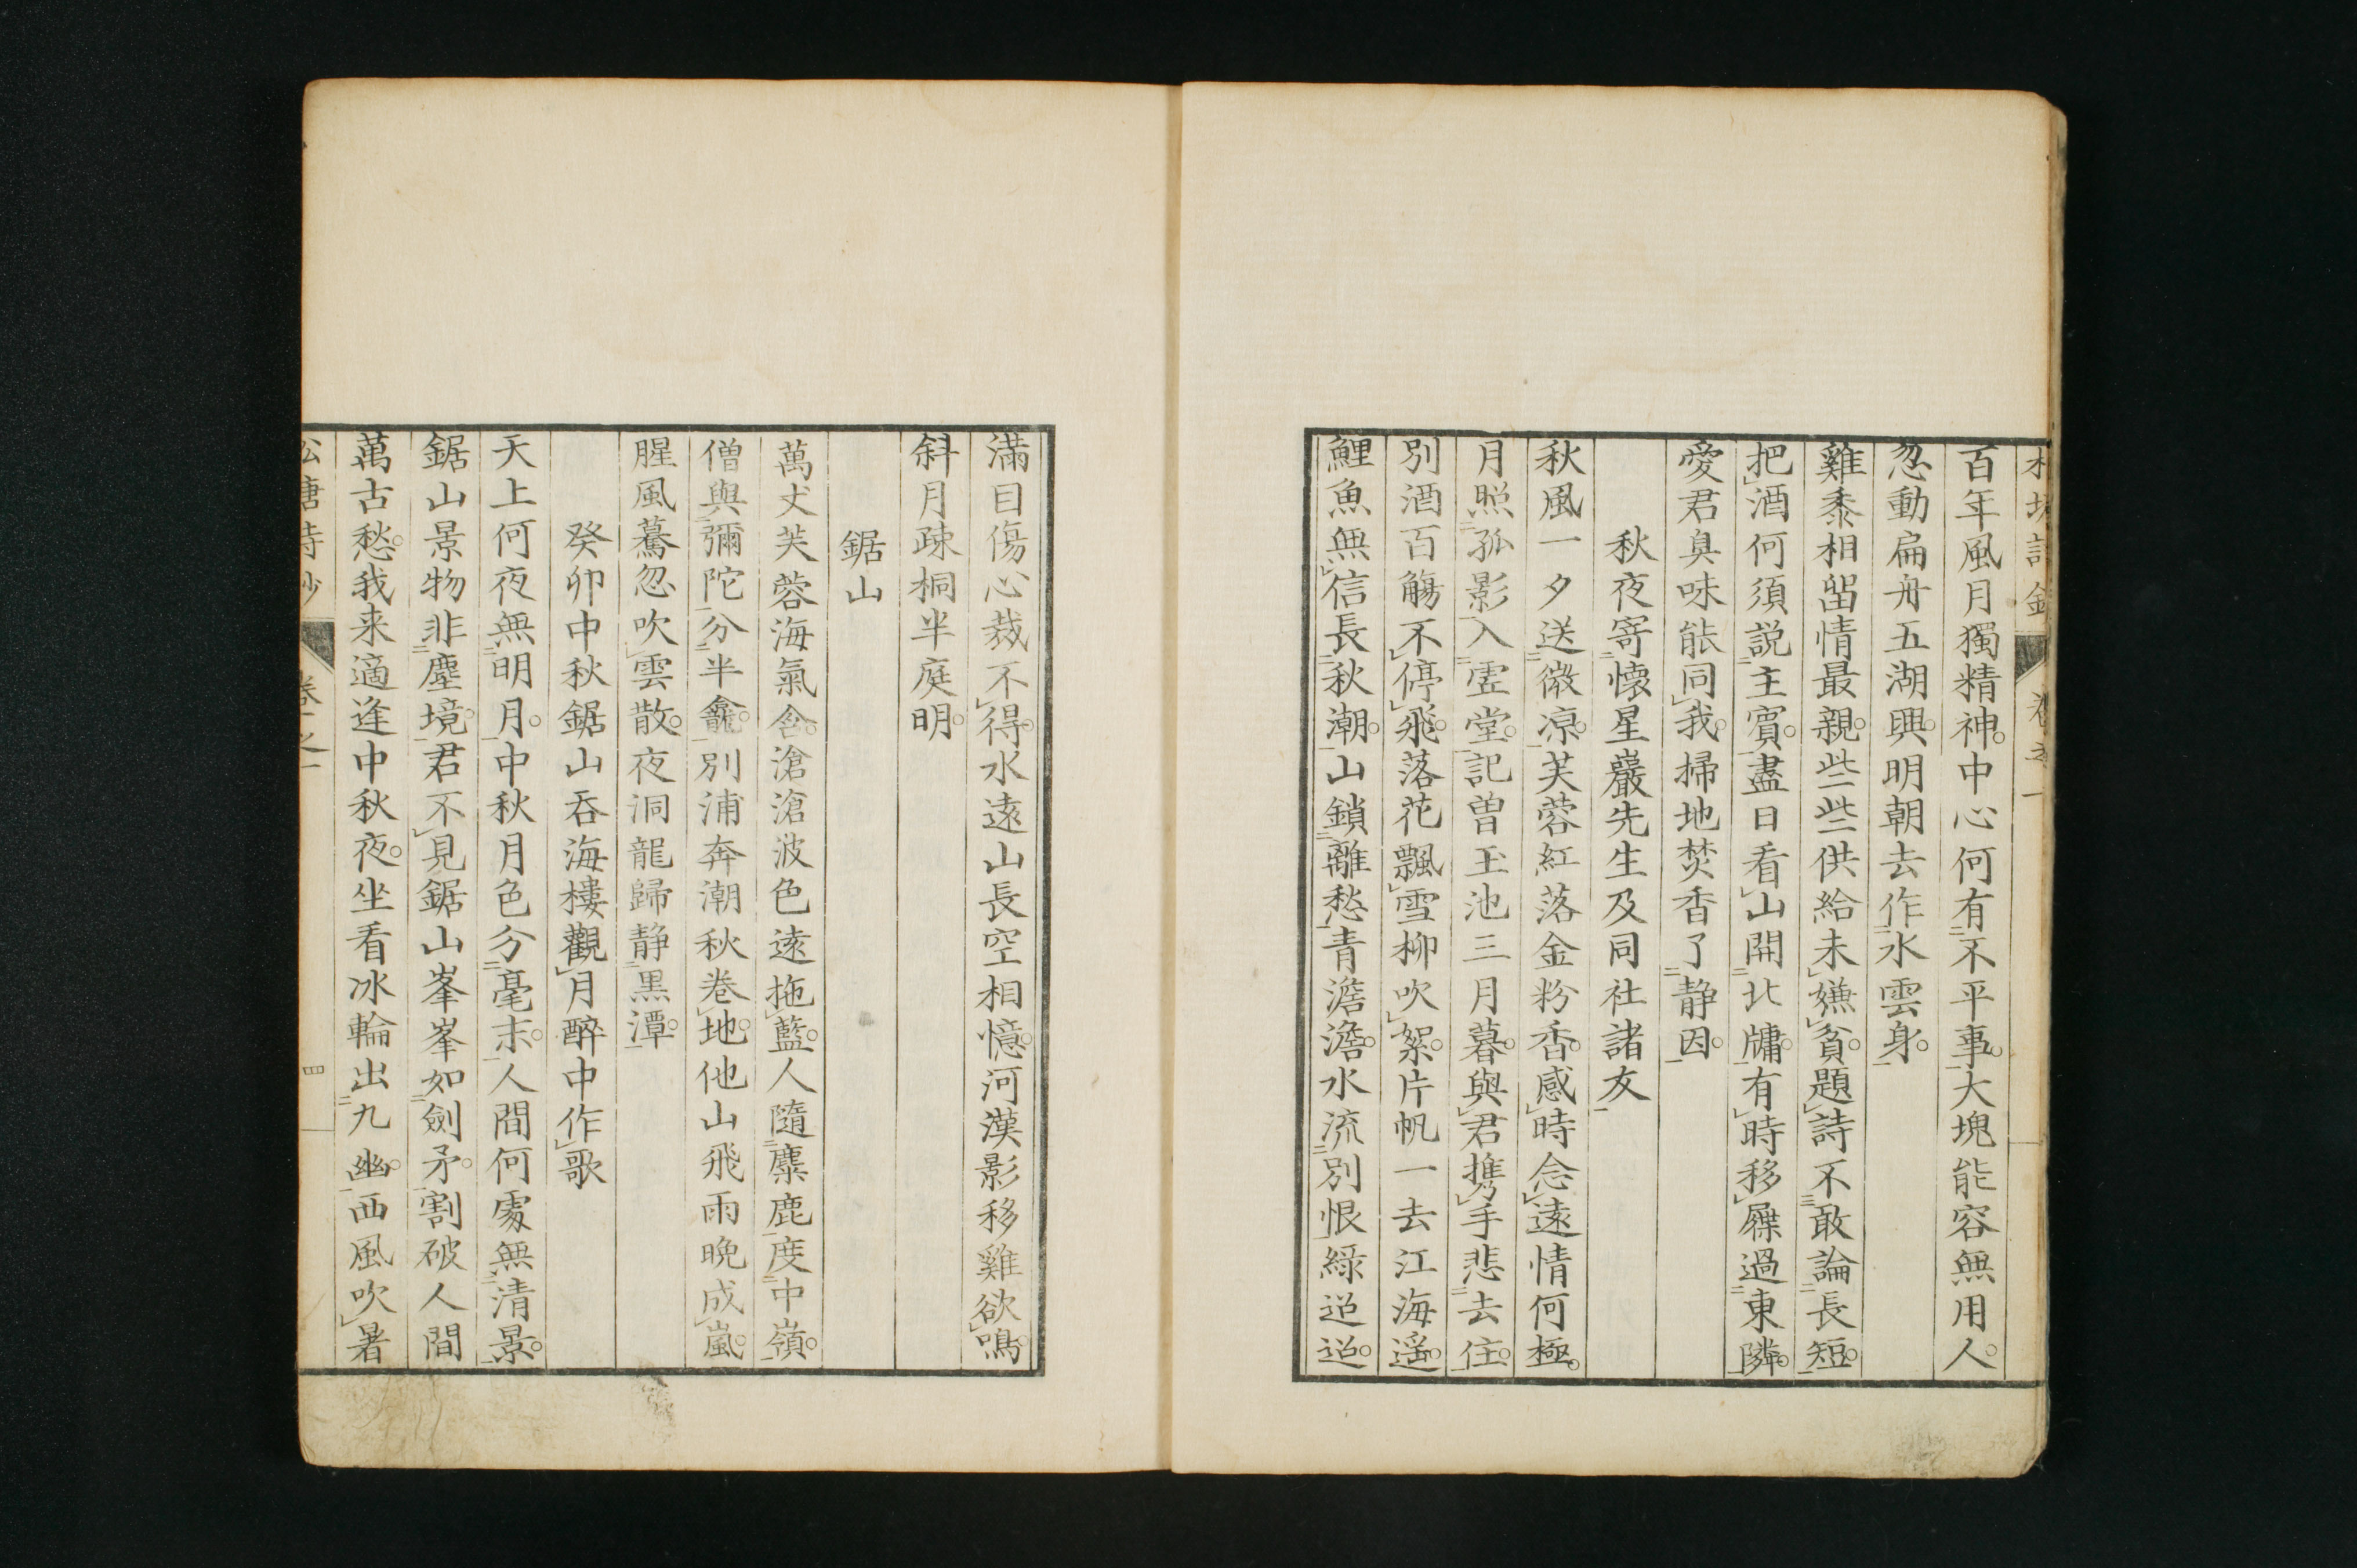 百年風月獨精神。中心何有不平事。大塊能容無用人。
忽動扁舟五湖興。明朝去作水雲身。
雞黍相留情最親。些些供給未嫌貧。題詩不敢論長短。
把酒何須説主賓。盡日看山開北牗。有時移屧過東隣。
愛君臭味能同我。掃地焚香了静因。
秋夜寄懷星巖先生及同社諸友
秋風一夕送微凉。芙蓉紅落金粉香。感時念遠情何極。
月照孤影入虛堂。記曽玉池三月暮。與君携手悲去住。
別酒百觴不停飛。落花飄雪柳吹絮。片帆一去江海遥。
鯉魚無信長秋潮。山鎖離愁青澹澹。水流別恨綠迢迢。
滿目傷心裁不得。水遠山長空相憶。河漢影移雞欲鳴。
斜月疎桐半庭明。
鋸山
萬丈芙蓉海氣含。滄滄波色遠拖藍。人隨麋鹿度中嶺。
僧與彌陀分半龕。別浦奔潮秋卷地。他山飛雨晩成嵐。
腥風驀忽吹雲散。夜洞龍歸静黒潭。
癸卯中秋鋸山吞海樓觀月醉中作歌
天上何夜無明月。中秋月色分毫末。人間何處無清景。
鋸山景物非塵境。君不見鋸山峯峯如劍矛。割破人間
萬古愁。我来適逢中秋夜。坐看冰輪出九幽。西風吹暑
松唐詩鈔 卷之一 四